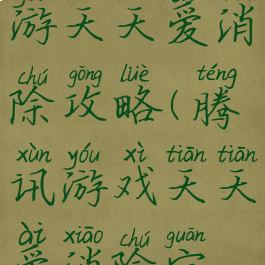 游天天爱消
chú gōng lüè téng
除攻略(腾
xùn yóu xì tiān tiān
讯游戏天天
ài xiāo chú guān
爱消除官